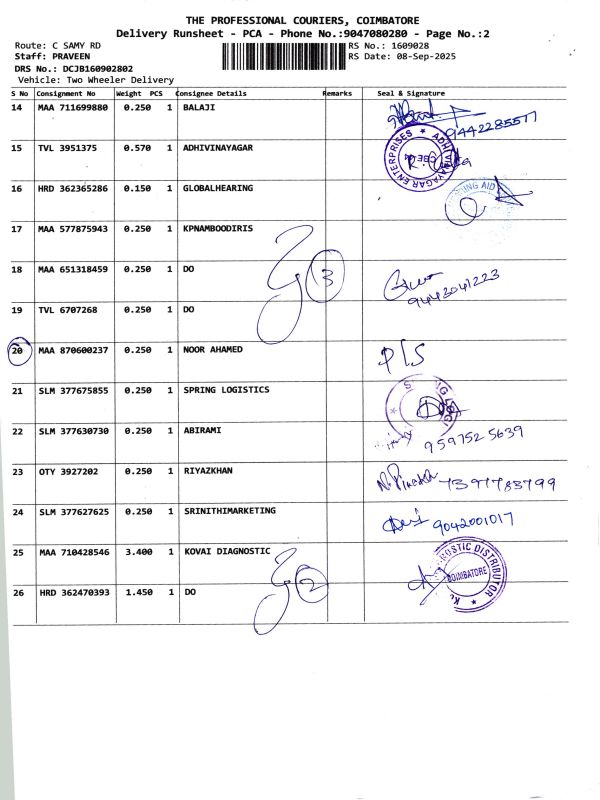 THE PROFESSIONAL COURIERS, COIMBATORE
Delivery Runsheet - PCA - Phone No.:9047080280 - Page No.:2
Route: C SAMY RD RS No.: 1609028
Staff: PRAVEEN RS Date: 08-Sep-2025
DRS No.: DCJB160902802
Vehicle: Two Wheeler Delivery
S No Consignment No Weight PCS Consignee Details Remarks Seal & Signature
14 MAA 711699880 0.250 1 BALAJI
9442285577
15 TVL 3951375 0.570 1 ADHIVINAYAGAR
ADHIVINAYAGAR ENTERPRISES
CBE
16 HRD 362365286 0.150 1 GLOBALHEARING
AID
17 MAA 577875943 0.250 1 KPNAMBOODIRIS
18 MAA 651318459 0.250 1 DO 3
9443041223
19 TVL 6707268 0.250 1 DO
20 MAA 870600237 0.250 1 NOOR AHAMED P/S
21 SLM 377675855 0.250 1 SPRING LOGISTICS
22 SLM 377630730 0.250 1 ABIRAMI 9597525639
23 OTY 3927202 0.250 1 RIYAZKHAN 7397783799
24 SLM 377627625 0.250 1 SRINITHIMARKETING 9042001017
25 MAA 710428546 3.400 1 KOVAI DIAGNOSTIC
DIAGNOSTIC DISTRIBUTOR
COIMBATORE
26 HRD 362470393 1.450 1 DO 2